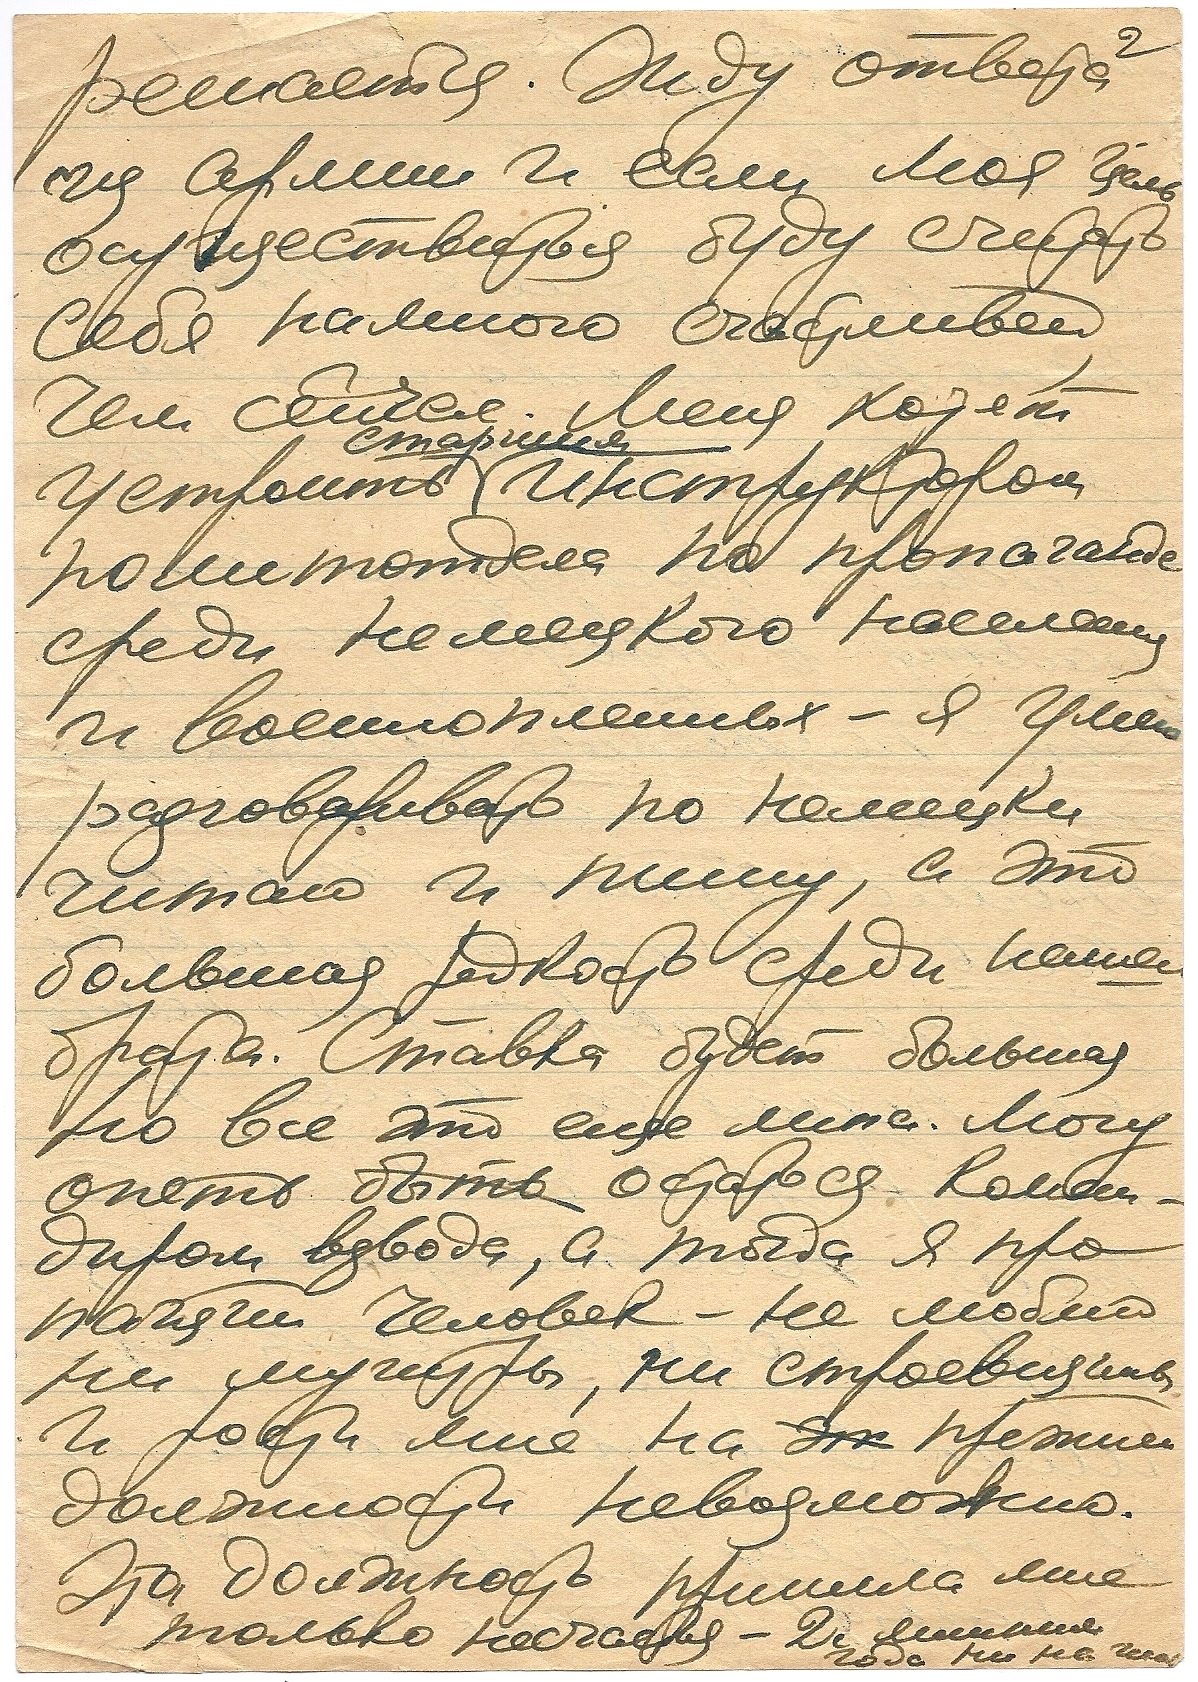 2
решается. Жду ответа
из армии и если моя цель
осуществиться буду считать
себя намного счастливей,
чем сейчас. Меня хотят
старшим
устроить инструктором
политотдела по пропаганде
среди немецкого населения
и военнопленных – я умею
разговаривать по немецки
читаю и пишу, а это
большая редкость среди нашего
брата. Ставка будет большая
но все это еще липа. Могу
опять быть остаться коман-
диром взвода, а тогда я про
пащий человек – не люблю
ни муштры, ни строевщины
и расти мне на эт прежней
должности невозможно.
Эта должность принесла мне
только несчастья – 2
года ни на